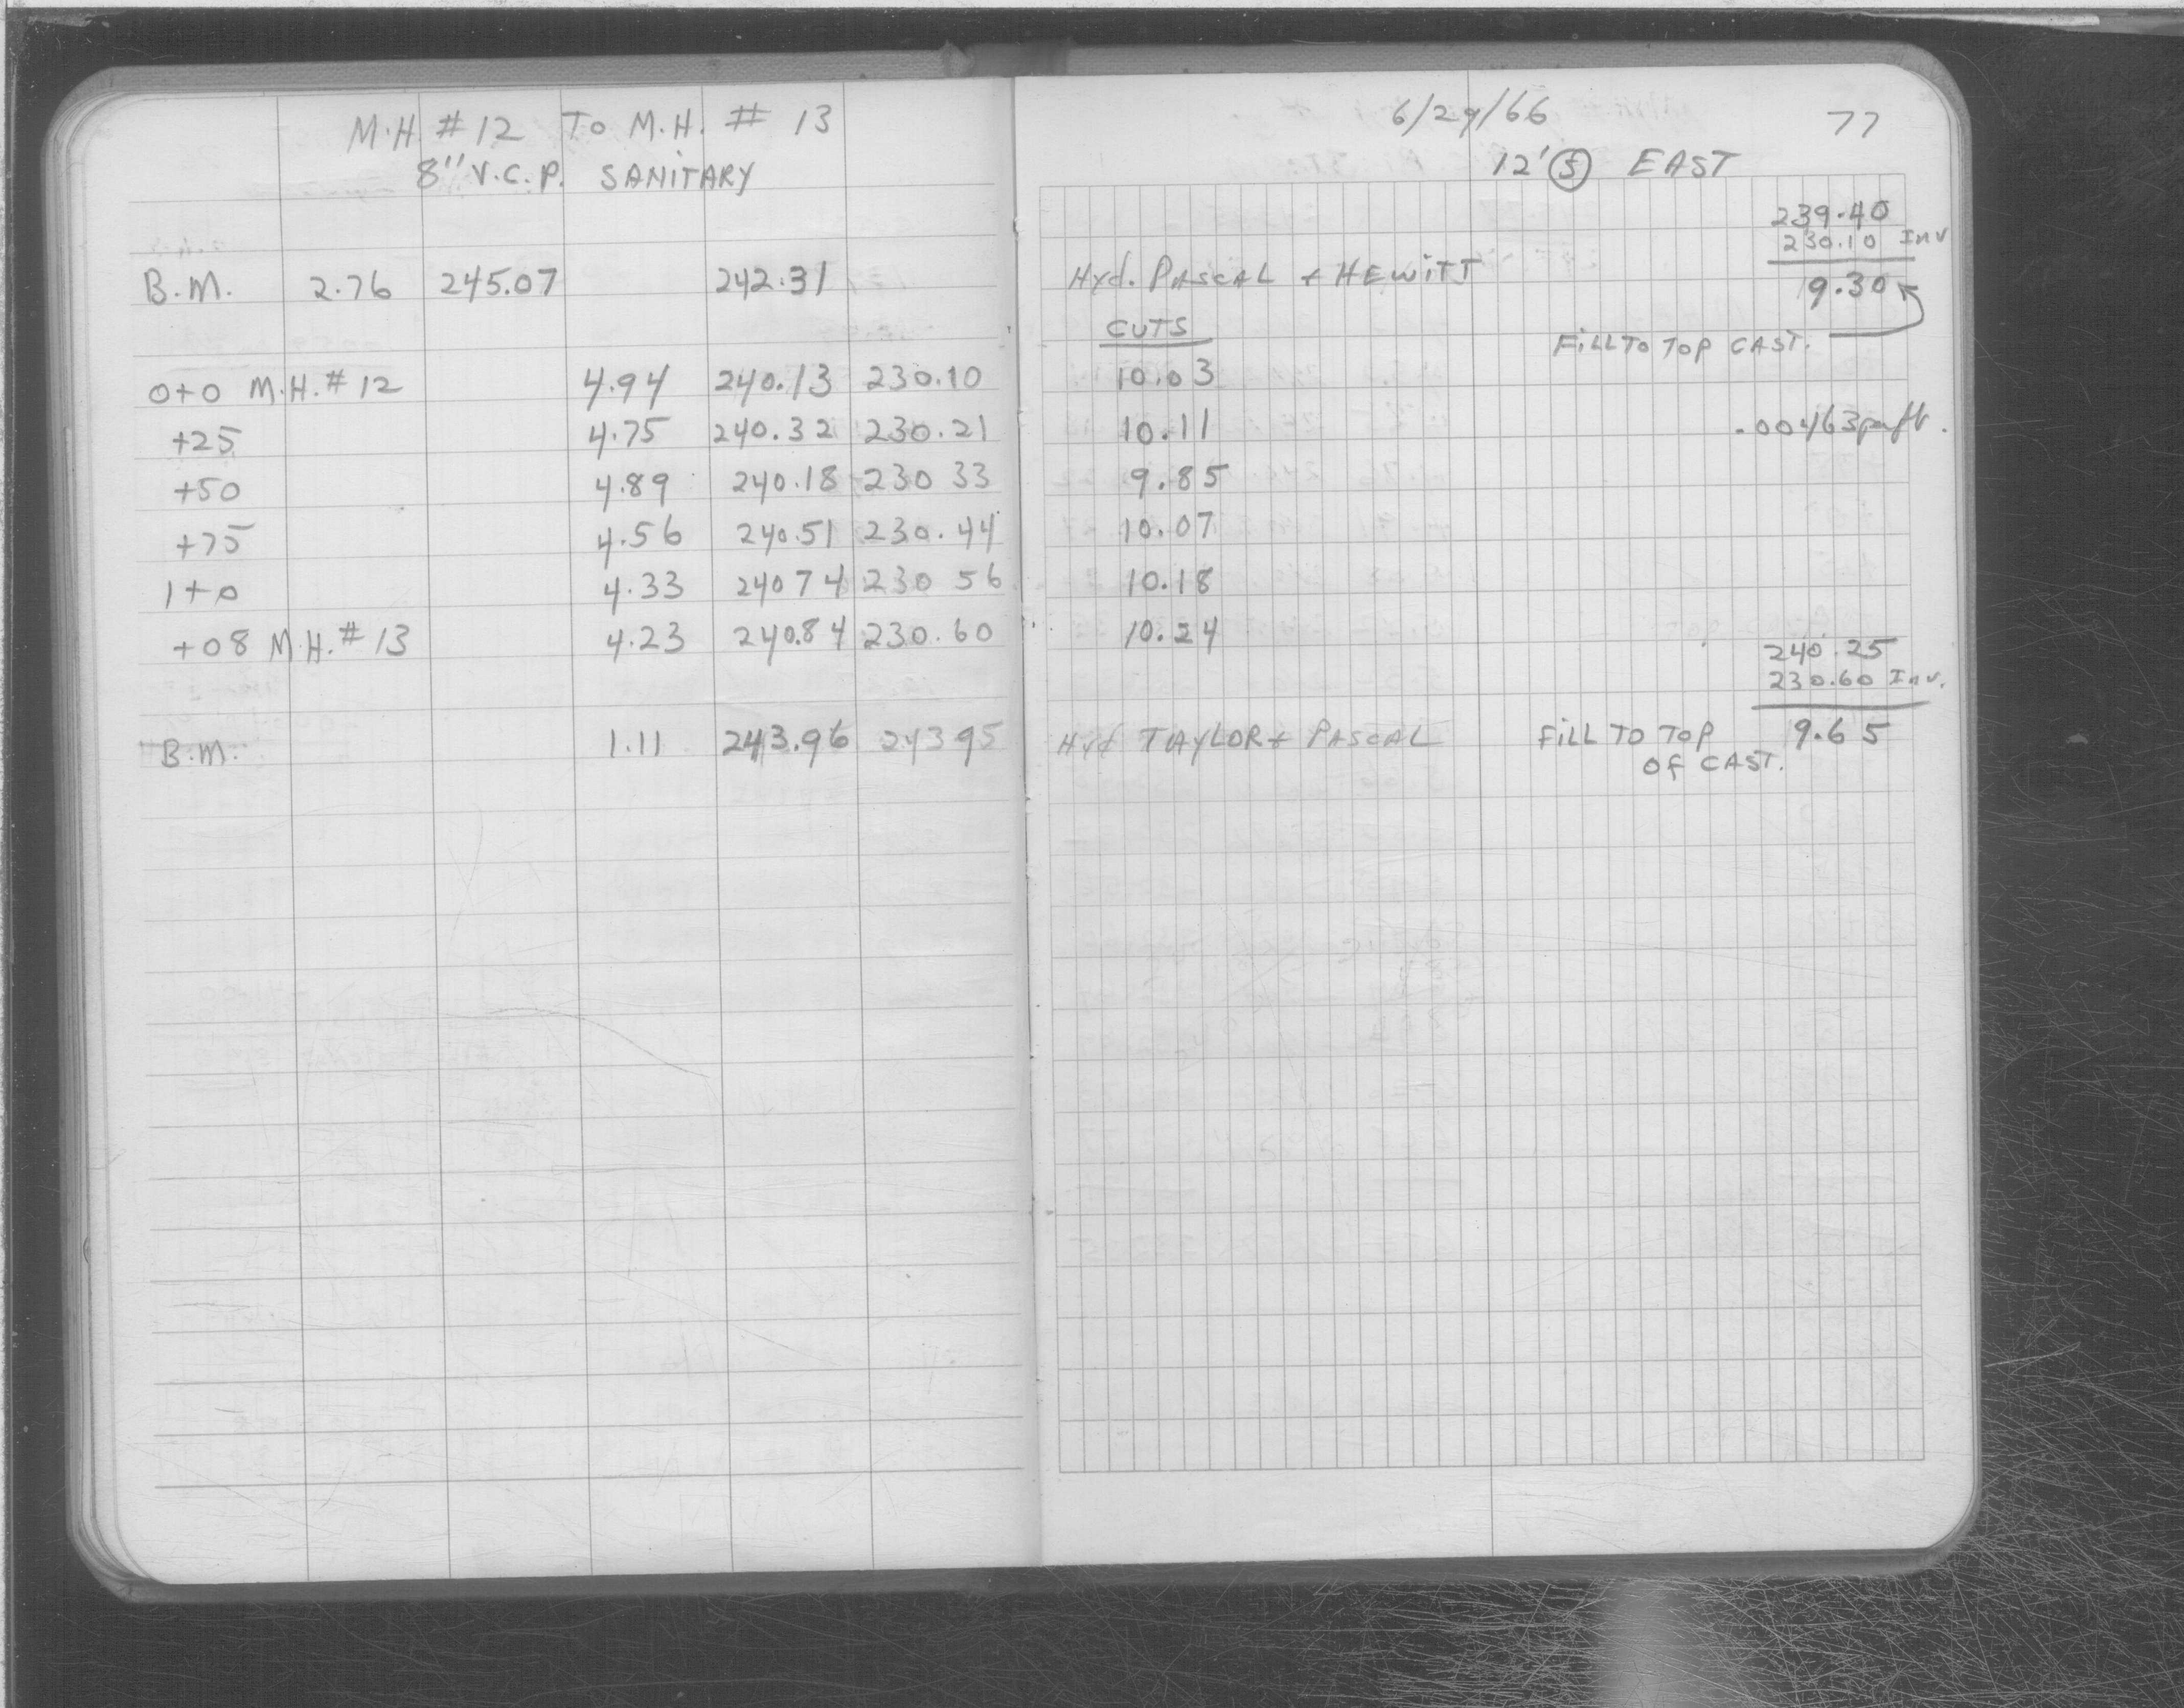 M.H. # 12 To M.H. # 13
8" V.C.P. SANITARY
B.M. 2.76 245.07 242.31
0+0 M.H. # 12 4.94 240.13 230.10
+25 4.75 240.32 230.21
+50 4.89 240.18 230 33
+75 4.56 240.51 230.44
1+0 4.33 240 74 230 56
+08 M.H. # 13 4.23 240.84 230.60
B.M. 1.11 243.96 243 95
6/29/66 77
12' S EAST
239.40
230.10 Inv
Hyd. PASCAL + HEWITT 9.30
CUTS
FILL TO TOP CAST.
10.03
10.11 .00463 per ft.
9.85
10.07
10.18
10.24
240.25
230.60 Inv.
Hyd TAYLOR + PASCAL FILL TO TOP 9.65
OF CAST.